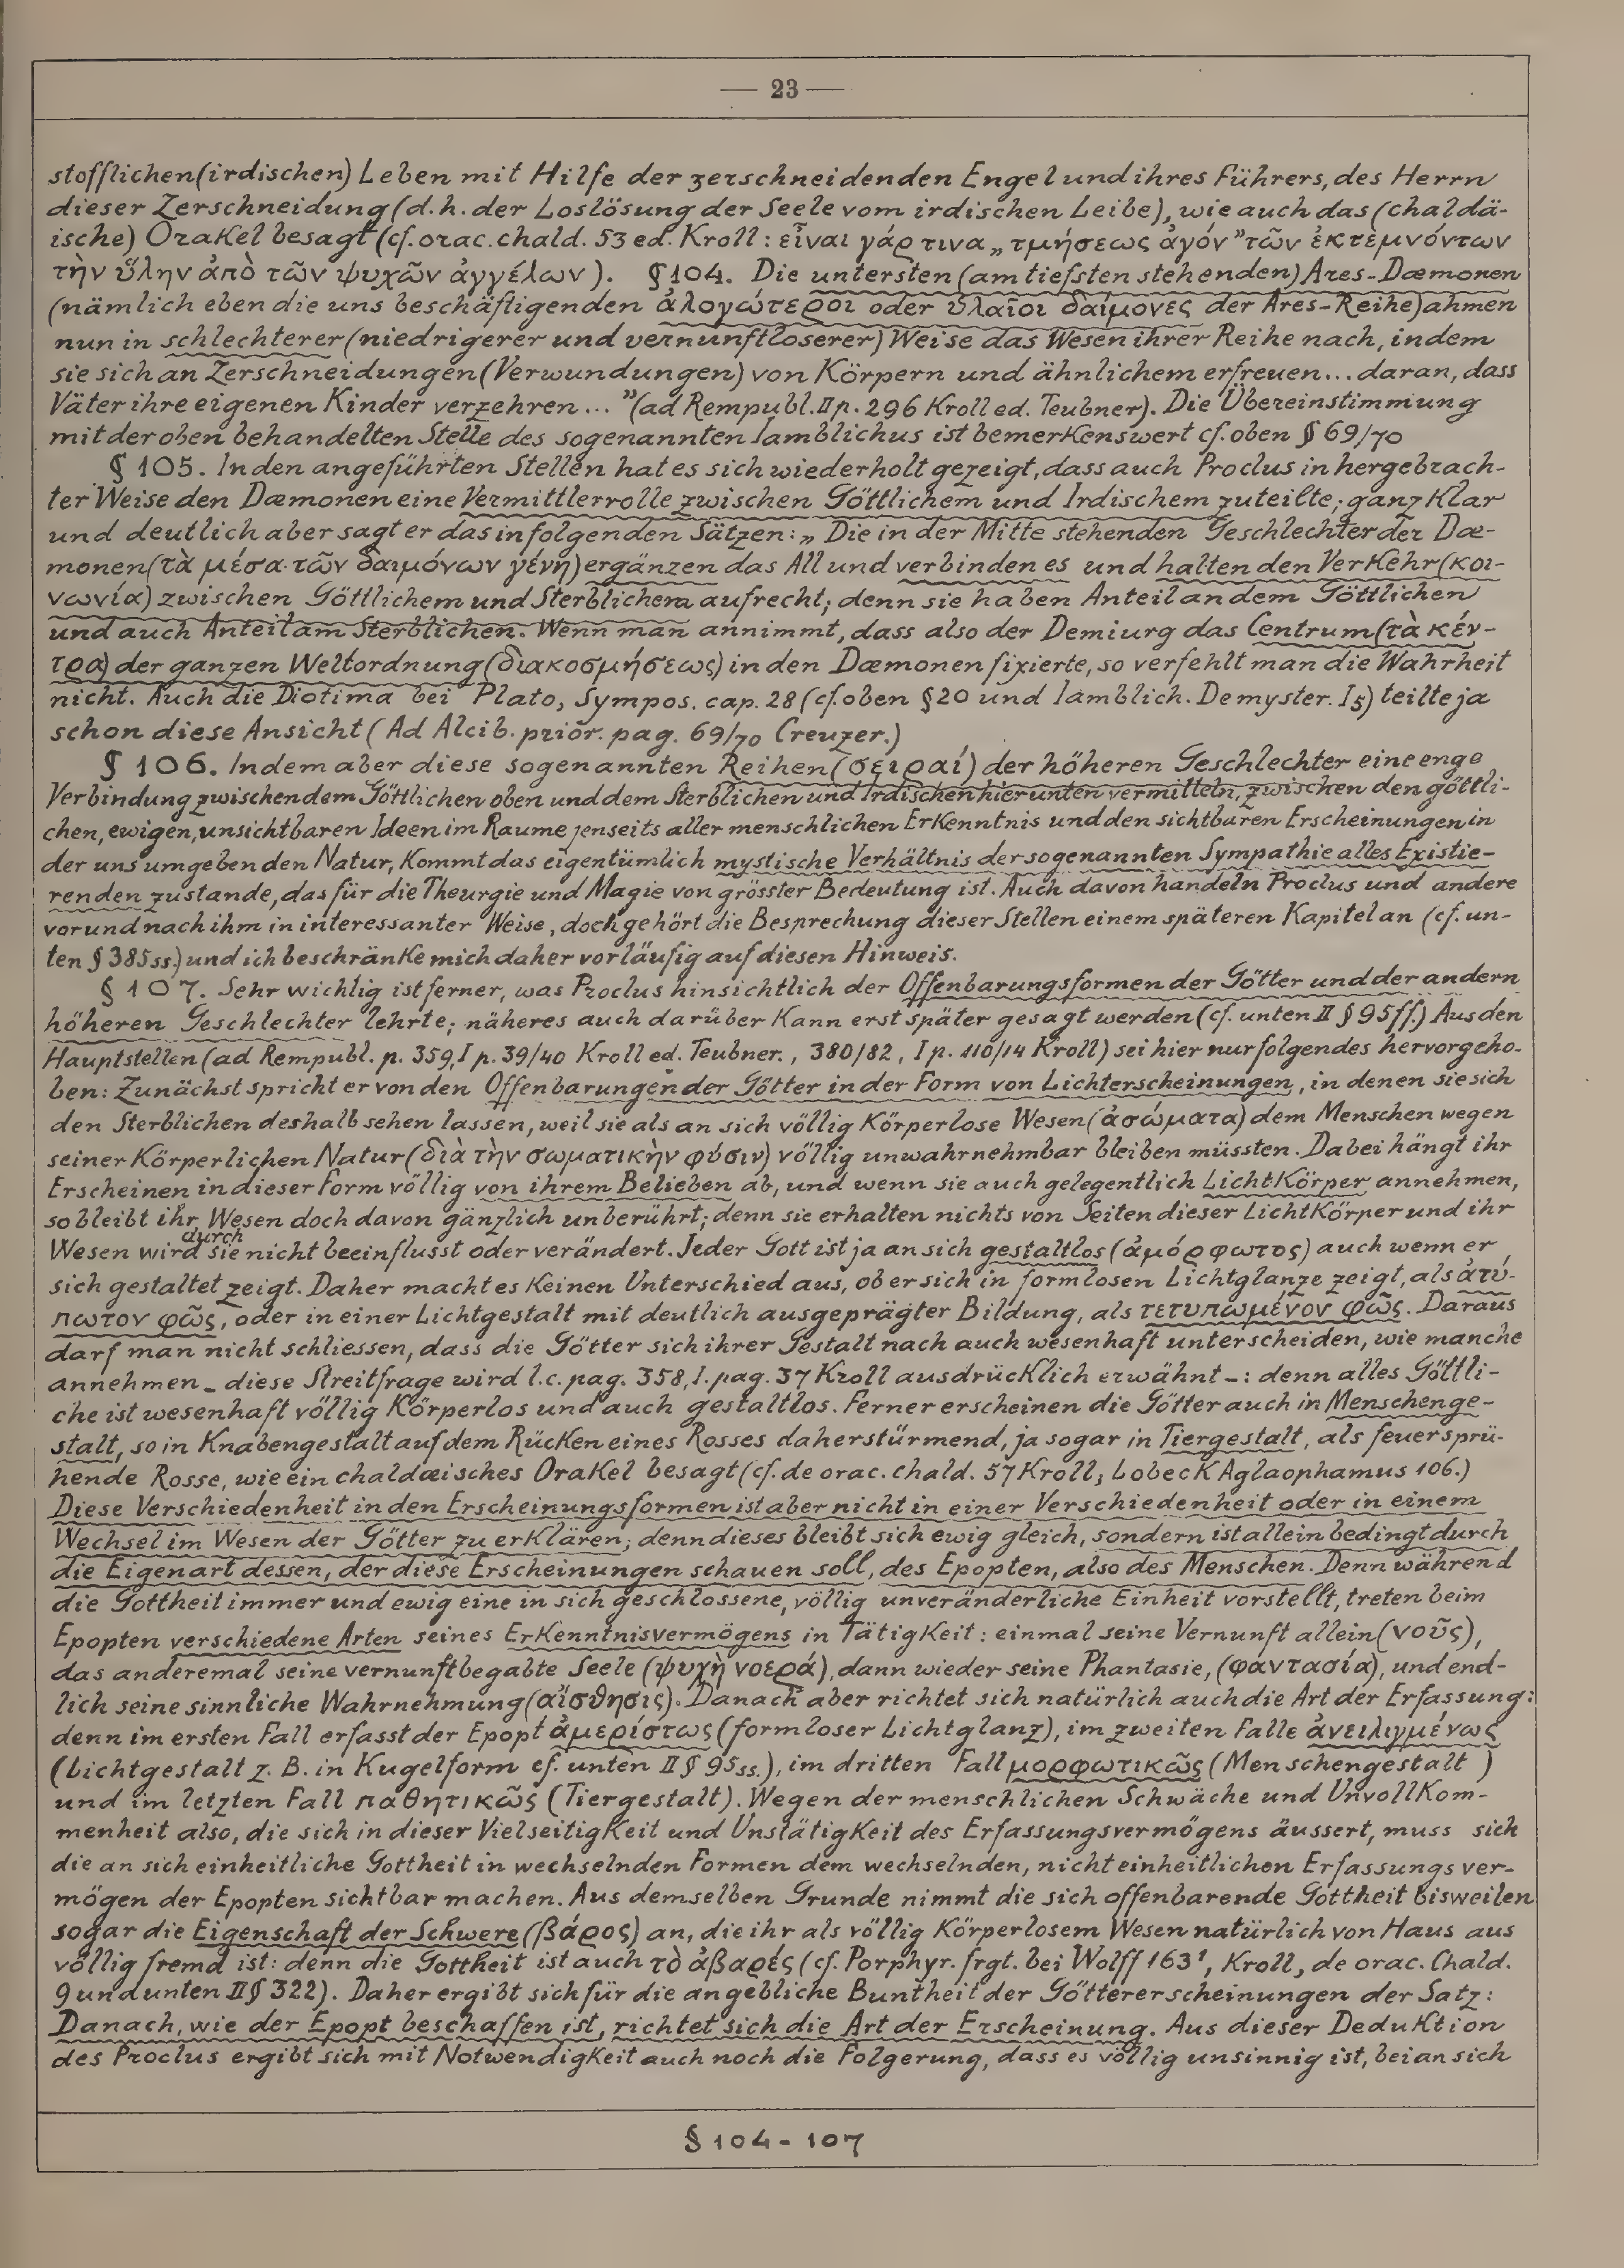 — 23 —
stofflichen (irdischen) Leben mit Hilfe der zerschneidenden Engel und ihres Führers, des Herrn
dieser Zerschneidung (d.h. der Loslösung der Seele vom irdischen Leibe), wie auch das (chaldä-
ische) Orakel besagt (cf. orac. chald. 53 ed. Kroll: εἶναι γάρ τινα „τμήσεως ἀγόν” τῶν ἐκτεμνόντων
τὴν ὕλην ἀπὸ τῶν ψυχῶν ἀγγέλων). § 104. Die untersten (am tiefsten stehenden) Ares-Dæmonen
(nämlich eben die uns beschäftigenden ἀλογώτεροι oder ὑλαῖοι δαίμονες der Ares-Reihe) ahmen
nun in schlechterer (niedrigerer und vernunftloserer) Weise das Wesen ihrer Reihe nach, indem
sie sich an Zerschneidungen (Verwundungen) von Körpern und ähnlichem erfreuen... daran, dass
Väter ihre eigenen Kinder verzehren...” (ad Rempubl. II p. 296 Kroll ed. Teubner). Die Übereinstimmung
mit der oben behandelten Stelle des sogenannten Iamblichus ist bemerkenswert cf. oben § 69/70
§ 105. In den angeführten Stellen hat es sich wiederholt gezeigt, dass auch Proclus in hergebrach-
ter Weise den Dæmonen eine Vermittlerrolle zwischen Göttlichem und Irdischem zuteilte; ganz klar
und deutlich aber sagt er das in folgenden Sätzen: „Die in der Mitte stehenden Geschlechter der Dæ-
monen (τὰ μέσα τῶν δαιμόνων γένη) ergänzen das All und verbinden es und halten den Verkehr (κοι-
νωνία) zwischen Göttlichem und Sterblichem aufrecht; denn sie haben Anteil an dem Göttlichen
und auch Anteil am Sterblichen. Wenn man annimmt, dass also der Demiurg das Centrum (τὰ κέν-
τρα) der ganzen Weltordnung (διακοσμήσεως) in den Dæmonen fixierte, so verfehlt man die Wahrheit
nicht. Auch die Diotima bei Plato, Sympos. cap. 28 (cf. oben § 20 und Iamblich. De myster. I5) teilte ja
schon diese Ansicht (Ad Alcib. prior. pag. 69/70 Creuzer.)
§ 106. Indem aber diese sogenannten Reihen (σειραί) der höheren Geschlechter eine enge
Verbindung zwischen dem Göttlichen oben und dem Sterblichen und Irdischen hier unten vermitteln, zwischen den göttli-
chen, ewigen, unsichtbaren Ideen im Raume jenseits aller menschlichen Erkenntnis und den sichtbaren Erscheinungen in
der uns umgebenden Natur, kommt das eigentümlich mystische Verhältnis der sogenannten Sympathie alles Existie-
renden zustande, das für die Theurgie und Magie von grösster Bedeutung ist. Auch davon handeln Proclus und andere
vor und nach ihm in interessanter Weise, doch gehört die Besprechung dieser Stellen einem späteren Kapitel an (cf. un-
ten § 385 ss.) und ich beschränke mich daher vorläufig auf diesen Hinweis.
§ 107. Sehr wichtig ist ferner, was Proclus hinsichtlich der Offenbarungsformen der Götter und der andern
höheren Geschlechter lehrte; näheres auch darüber kann erst später gesagt werden (cf. unten II § 95 ff.) Aus den
Hauptstellen (ad Rempubl. p. 359, I p. 39/40 Kroll ed. Teubner., 380/82, I p. 110/14 Kroll) sei hier nur folgendes hervorgeho-
ben: Zunächst spricht er von den Offenbarungen der Götter in der Form von Lichterscheinungen, in denen sie sich
den Sterblichen deshalb sehen lassen, weil sie als an sich völlig körperlose Wesen (ἀσώματα) dem Menschen wegen
seiner körperlichen Natur (διὰ τὴν σωματικὴν φύσιν) völlig unwahrnehmbar bleiben müssten. Dabei hängt ihr
Erscheinen in dieser Form völlig von ihrem Belieben ab, und wenn sie auch gelegentlich Lichtkörper annehmen,
so bleibt ihr Wesen doch davon gänzlich unberührt; denn sie erhalten nichts von Seiten dieser Lichtkörper und ihr
durch
Wesen wird sie nicht beeinflusst oder verändert. Jeder Gott ist ja an sich gestaltlos (ἀμόρφωτος) auch wenn er
sich gestaltet zeigt. Daher macht es keinen Unterschied aus, ob er sich in formlosen Lichtglanze zeigt, als ἀτύ-
πωτον φῶς, oder in einer Lichtgestalt mit deutlich ausgeprägter Bildung, als τετυπωμένον φῶς. Daraus
darf man nicht schliessen, dass die Götter sich ihrer Gestalt nach auch wesenhaft unterscheiden, wie manche
annehmen – diese Streitfrage wird l.c. pag. 358, I. pag. 37 Kroll ausdrücklich erwähnt –: denn alles Göttli-
che ist wesenhaft völlig körperlos und auch gestaltlos. Ferner erscheinen die Götter auch in Menschenge-
stalt, so in Knabengestalt auf dem Rücken eines Rosses daherstürmend, ja sogar in Tiergestalt, als feuersprü-
hende Rosse, wie ein chaldæisches Orakel besagt (cf. de orac. chald. 57 Kroll; Lobeck Aglaophamus 106.)
Diese Verschiedenheit in den Erscheinungsformen ist aber nicht in einer Verschiedenheit oder in einem
Wechsel im Wesen der Götter zu erklären; denn dieses bleibt sich ewig gleich, sondern ist allein bedingt durch
die Eigenart dessen, der diese Erscheinungen schauen soll, des Epopten, also des Menschen. Denn während
die Gottheit immer und ewig eine in sich geschlossene, völlig unveränderliche Einheit vorstellt, treten beim
Epopten verschiedene Arten seines Erkenntnisvermögens in Tätigkeit: einmal seine Vernunft allein (νοῦς),
das anderemal seine vernunftbegabte Seele (ψυχὴ νοερά), dann wieder seine Phantasie, (φάντασία), und end-
lich seine sinnliche Wahrnehmung (αἴσθησις). Danach aber richtet sich natürlich auch die Art der Erfassung:
denn im ersten Fall erfasst der Epopt ἀμερίστως (formloser Lichtglanz), im zweiten Falle ἀνειλιγμένως
(Lichtgestalt z. B. in Kugelform cf. unten II § 95 ss.), im dritten Fall μορφωτικῶς (Menschengestalt)
und im letzten Fall παθητικῶς (Tiergestalt). Wegen der menschlichen Schwäche und Unvollkom-
menheit also, die sich in dieser Vielseitigkeit und Unstätigkeit des Erfassungsvermögens äussert, muss sich
die an sich einheitliche Gottheit in wechselnden Formen dem wechselnden, nicht einheitlichen Erfassungsver-
mögen der Epopten sichtbar machen. Aus demselben Grunde nimmt die sich offenbarende Gottheit bisweilen
sogar die Eigenschaft der Schwere (βάρος) an, die ihr als völlig körperlosem Wesen natürlich von Haus aus
völlig fremd ist: denn die Gottheit ist auch τὸ ἀβαρές (cf. Porphyr. frgt. bei Wolff 163¹, Kroll, de orac. Chald.
9 und unten II § 322). Daher ergibt sich für die angebliche Buntheit der Göttererscheinungen der Satz:
Danach, wie der Epopt beschaffen ist, richtet sich die Art der Erscheinung. Aus dieser Deduktion
des Proclus ergibt sich mit Notwendigkeit auch noch die Folgerung, dass es völlig unsinnig ist, bei an sich
§ 104 - 107